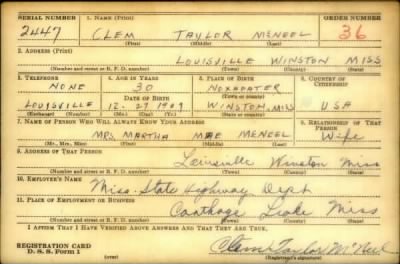 SERIAL NUMBER 1. NAME (Print) ORDER NUMBER
2447 CLEM TAYLOR MCNEEL 36
(First) (Middle) (Last)
2. ADDRESS (Print)
LOUISVILLE WINSTON MISS
(Number and street or R. F. D. number) (Town) (County) (State)
3. TELEPHONE 4. AGE IN YEARS 5. PLACE OF BIRTH 6. COUNTRY OF CITIZENSHIP
NONE 30 NOXAPATER
DATE OF BIRTH (Town or county)
LOUISVILLE 12-27-1909 WINSTON, MISS USA
(Exchange) (Number) (Mo.) (Day) (Yr.) (State or country)
7. NAME OF PERSON WHO WILL ALWAYS KNOW YOUR ADDRESS 8. RELATIONSHIP OF THAT PERSON
MRS. MARTHA MAE MCNEEL Wife
(Mr., Mrs., Miss) (First) (Middle) (Last)
9. ADDRESS OF THAT PERSON
Louisville Winston Miss
(Number and street or R. F. D. number) (Town) (County) (State)
10. EMPLOYER'S NAME
Miss. State Highway Dept
11. PLACE OF EMPLOYMENT OR BUSINESS
Carthage Leake Miss
(Number and street or R. F. D. number) (Town) (County) (State)
I AFFIRM THAT I HAVE VERIFIED ABOVE ANSWERS AND THAT THEY ARE TRUE.
REGISTRATION CARD Clem Taylor McNeel
D. S. S. Form 1 (Registrant's signature)